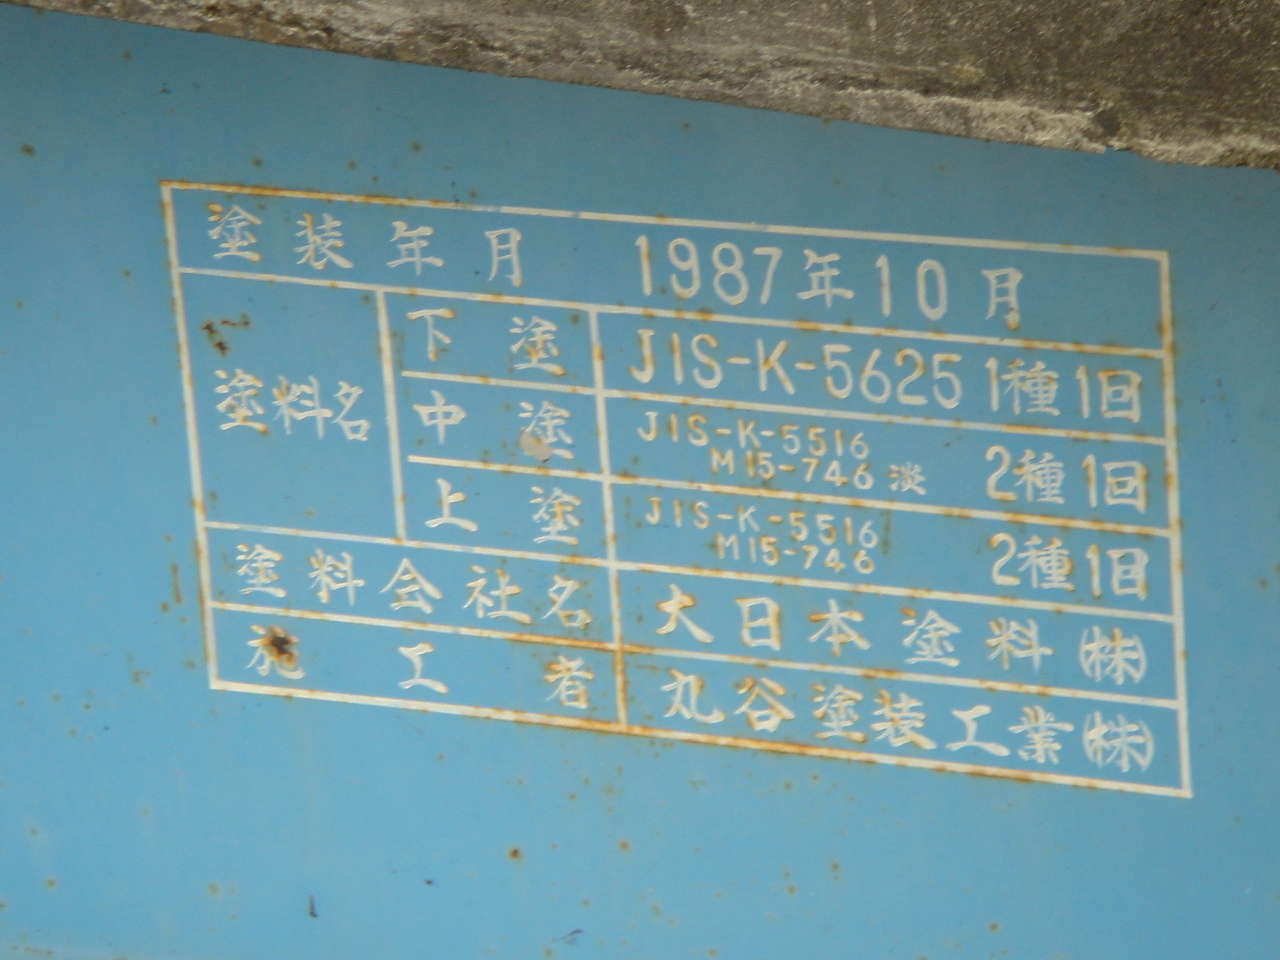 塗装年月 1987年10月
塗料名
下塗 JIS-K-5625 1種1回
中塗 JIS-K-5516 M15-746 淡 2種1回
上塗 JIS-K-5516 M15-746 2種1回
塗料会社名 大日本塗料㈱
施工者 丸谷塗装工業㈱